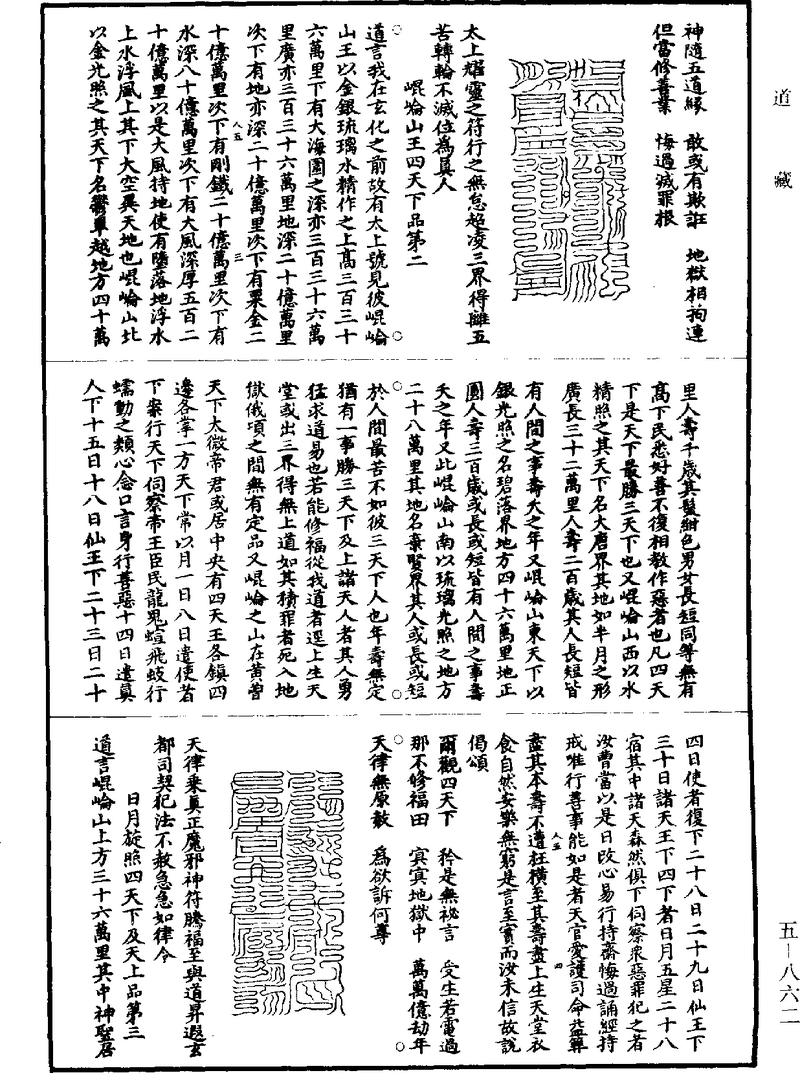 道藏
五—八六二
神隨五道緣　敢或有欺誑　地獄相拘連
但當修善業　悔過滅罪根
太上耀靈之符行之無怠超凌三界得離五
苦轉輪不滅位為真人
崐崘山王四天下品第二
道言我在玄化之前故有太上號見彼崐崘
山王以金銀琉璃水精作之上高三百三十
六萬里下有大海圍之深亦三百三十六萬
里廣亦三百三十六萬里地深二十億萬里
次下有地亦深二十億萬里次下有粟金二
十億萬里次下有剛鐵二十億萬里次下有
水深八十億萬里次下有大風深厚五百二
十億萬里以是大風持地使有墮落地浮水
上水浮風上其下大空異天地也崐崘山北
以金光照之其天下名欝單越地方四十萬
里人壽千歲其髮紺色男女長短同等無有
高下民悉好善不復相教作惡者也凡四天
下是天下最勝三天下也又崐崘山西以水
精照之其天下名大唐界其地如半月之形
廣長三十二萬里人壽二百歲其人長短皆
有人間之事壽夭之年又崐崘山東天下以
銀光照之名碧落界地方四十六萬里地正
圓人壽三百歲或長或短皆有人間之事壽
夭之年又此崐崘山南以琉璃光照之地方
二十八萬里其地名棄賢界其人或長或短
於人間最苦不如彼三天下人也年壽無定
猶有一事勝三天下及上諸天人者其人勇
猛求道易也若能修福從我道者逕上生天
堂或出三界得無上道如其積罪者死入地
獄俄頃之間無有定品又崐崘之山在黃曾
天下太微帝君或居中央有四天王各鎮四
邊各掌一方天下常以月一日八日遣使者
下案行天下伺察帝王臣民龍鬼蝖飛蚑行
蠕動之類心念口言身行善惡十四日遣真
人下十五日十八日仙王下二十三日二十
四日使者復下二十八日二十九日仙王下
三十日諸天王下四下者日月五星二十八
宿其中諸天森然俱下伺察眾惡罪犯之者
汝曹當以是日改心易行持齋悔過誦經持
戒唯行善事能如是者天官愛護司命益算
盡其本壽不遭枉橫至其壽盡上生天堂衣
食自然安樂無窮是言至實而汝未信故說
偈頌
爾觀四天下　矜是無祕言　受生若電過
那不修福田　冥冥地獄中　萬萬億劫年
天律無原赦　為欲訴何尊
天律乘真正魔邪神符騰福至與道昇遐玄
都司契犯法不赦急急如律令
日月旋照四天下及天上品第三
道言崐崘山上方三十六萬里其中神聖居